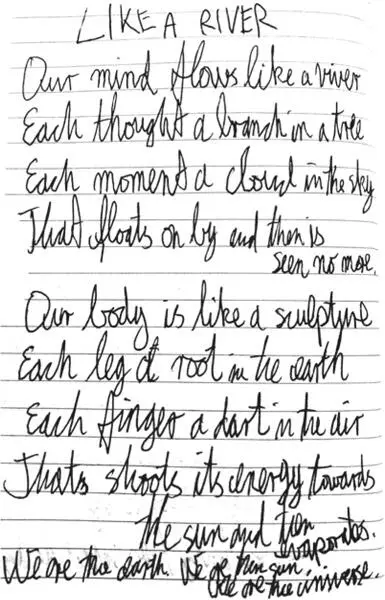 LIKE A RIVER
Our mind flows like a river
Each thought a branch in a tree
Each moment a cloud in the sky
That floats on by and then is
seen no more.
Our body is like a sculpture
Each leg a root in the earth
Each finger a dart in the air
Thats shoots its energy towards
the sun and then
evaporates.
We are the earth. We are the sun.
We are the universe..